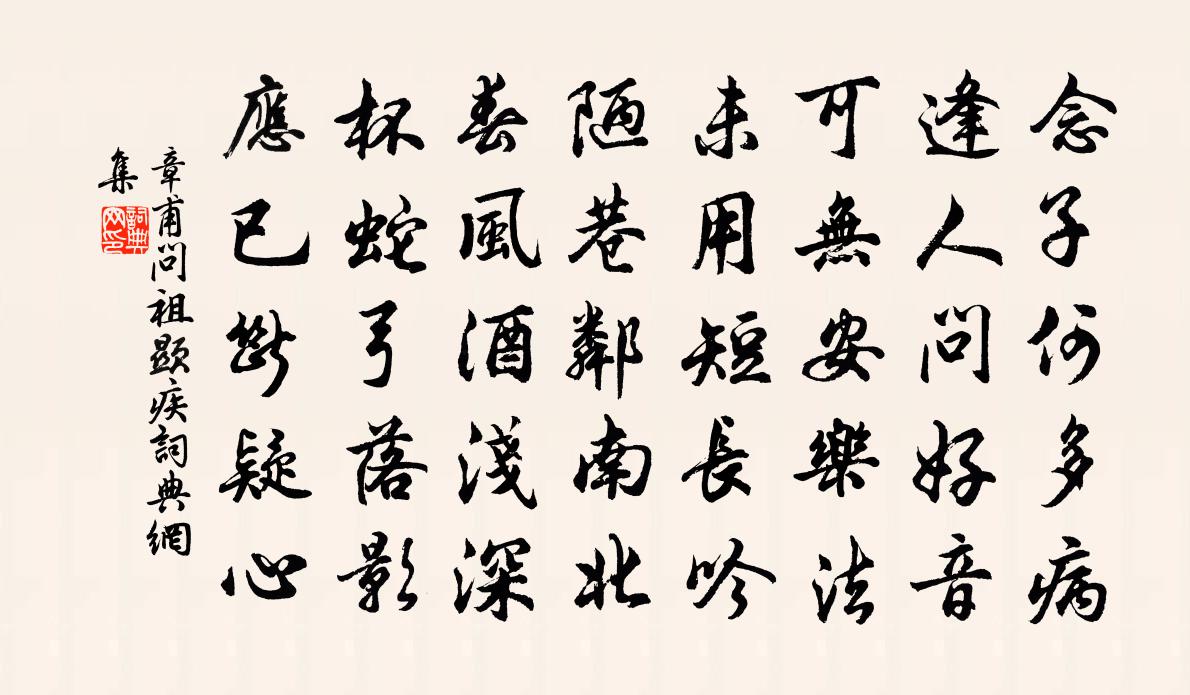 念子何多病
逢人問好音
可無安樂法
未用短長吟
陋巷鄰南北
春風酒淺深
杯蛇弓落影
應已斷疑心
章甫問祖顯疾詞典網
集
詞典
网印